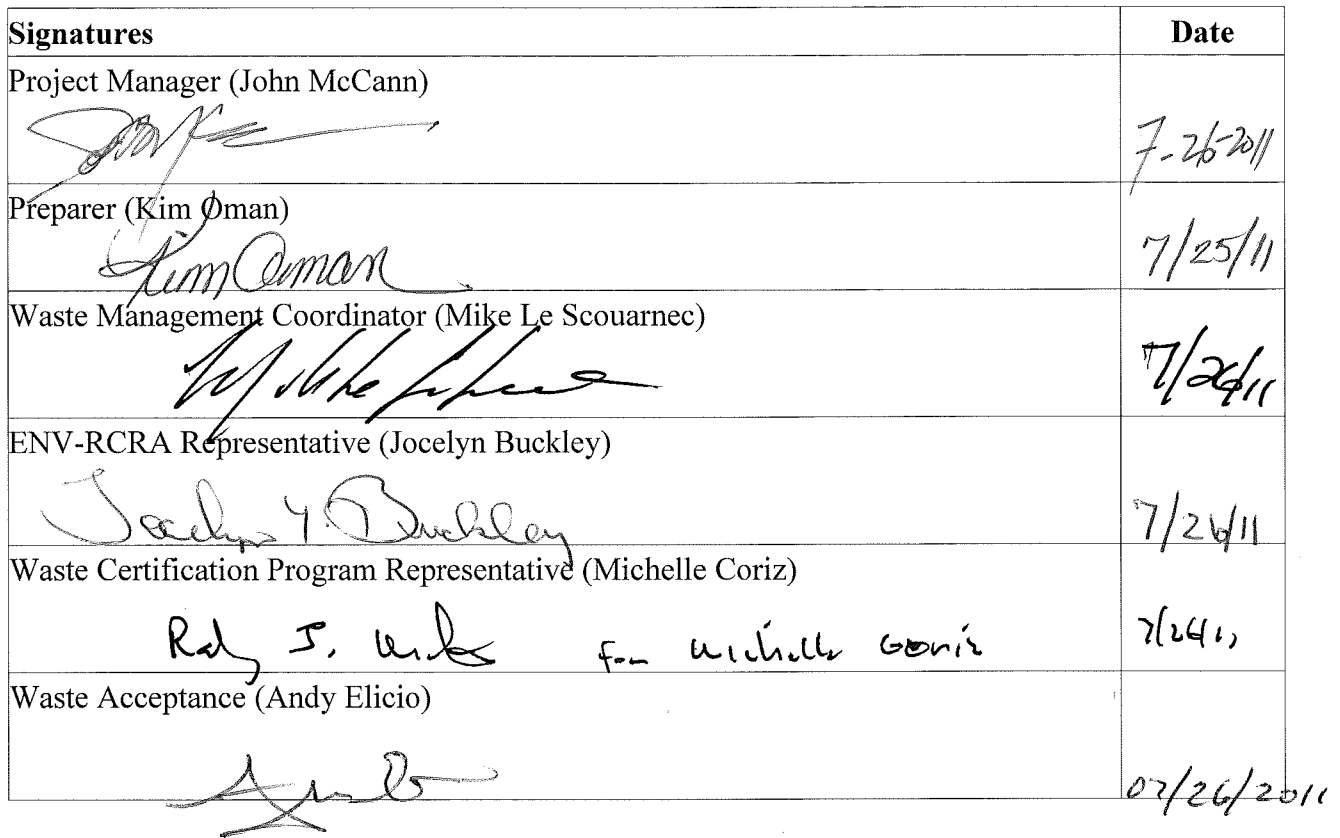 Signatures Date
Project Manager (John McCann)
7-26-2011
Preparer (Kim Oman)
Kim Oman 7/25/11
Waste Management Coordinator (Mike Le Scouarnec)
7/26/11
ENV-RCRA Representative (Jocelyn Buckley)
Jocelyn Y. Buckley 7/26/11
Waste Certification Program Representative (Michelle Coriz)
J. for Michelle Coriz 7/26/11
Waste Acceptance (Andy Elicio)
07/26/2011